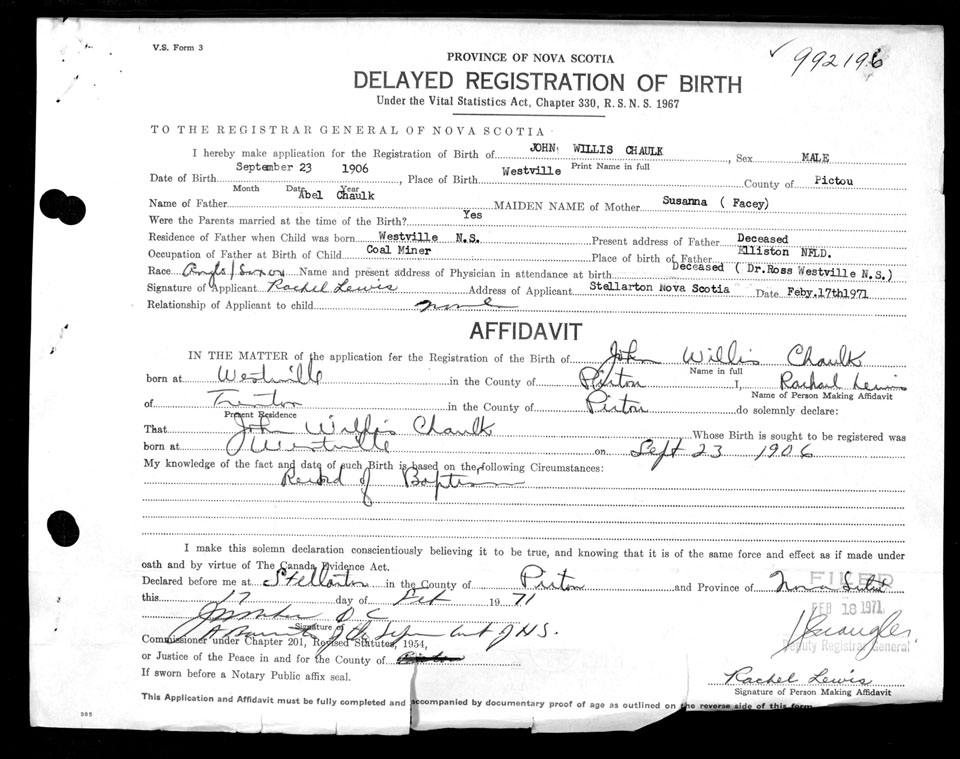 V.S. Form 3
✓ 992196
PROVINCE OF NOVA SCOTIA
DELAYED REGISTRATION OF BIRTH
Under the Vital Statistics Act, Chapter 330, R. S. N. S. 1967
TO THE REGISTRAR GENERAL OF NOVA SCOTIA
I hereby make application for the Registration of Birth of JOHN WILLIS CHAULK, Sex MALE
Print Name in full
Date of Birth September 23 1906, Place of Birth Westville County of Pictou
Month Date Year
Name of Father Abel Chaulk MAIDEN NAME of Mother Susanna ( Facey)
Were the Parents married at the time of the Birth? Yes
Residence of Father when Child was born Westville N.S. Present address of Father Deceased
Occupation of Father at Birth of Child Coal Miner Place of birth of Father Elliston NFLD.
Race Anglo/Saxon Name and present address of Physician in attendance at birth Deceased ( Dr.Ross Westville N.S.)
Signature of Applicant Rachel Lewis Address of Applicant Stellarton Nova Scotia Date Feby.17th1971
Relationship of Applicant to child none
AFFIDAVIT
IN THE MATTER of the application fer the Registration of the Birth of John Willis Chaulk
Name in full
born at Westville in the County of Pictou I, Rachael Lewis
Name of Person Making Affidavit
of Trenton in the County of Pictou do solemnly declare:
Present Residence
That John Willis Chaulk Whose Birth is sought to be registered was
born at Westville on Sept 23 1906
My knowledge of the fact and date of such Birth is based on the following Circumstances:
Record of Baptism
I make this solemn declaration conscientiously believing it to be true, and knowing that it is of the same force and effect as if made under
oath and by virtue of The Canada Evidence Act.
Declared before me at Stellarton in the County of Pictou and Province of Nova Scotia
this 17 day of Feb 1971
FILED
FEB 18 1971
Deputy Registrar General
Signature of
A Barrister of the Supreme Court of N.S.
Commissioner under Chapter 201, Revised Statutes, 1954,
or Justice of the Peace in and for the County of
If sworn before a Notary Public affix seal.
Rachel Lewis
Signature of Person Making Affidavit
This Application and Affidavit must be fully completed and accompanied by documentary proof of age as outlined on the reverse side of this form
985